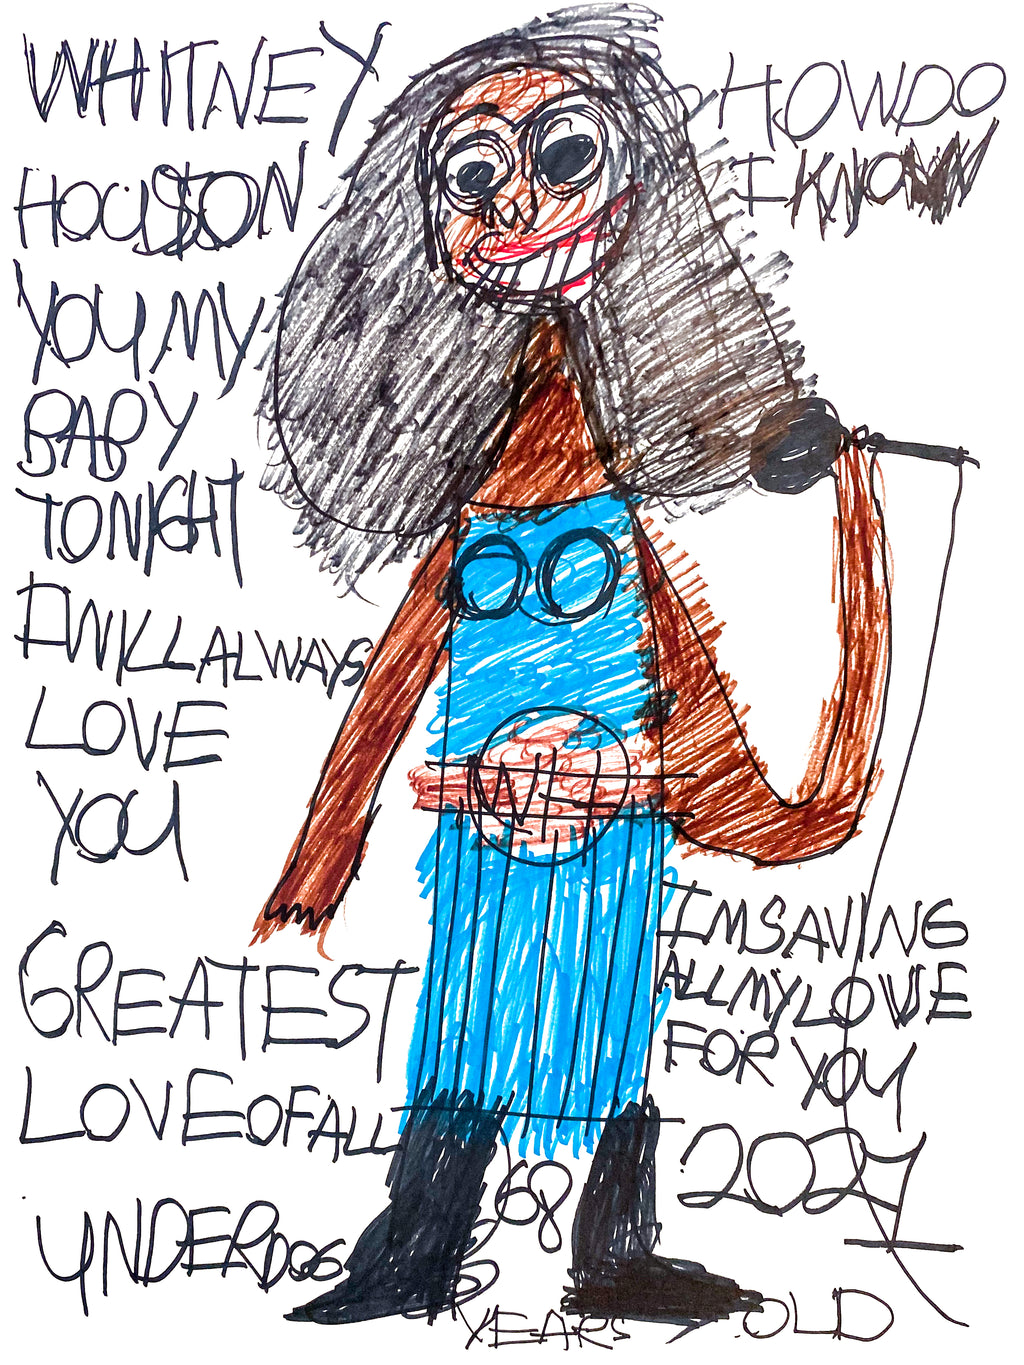 WHITNEY
HOUSTON
YOU MY
BABY
TONIGHT
I WILL ALWAYS
LOVE
YOU
GREATEST
LOVE OF ALL
UNDERDOG
HOW DO
I KNOW
WH
I'M SAVING
ALL MY LOVE
FOR YOU
2024
68
YEARS OLD